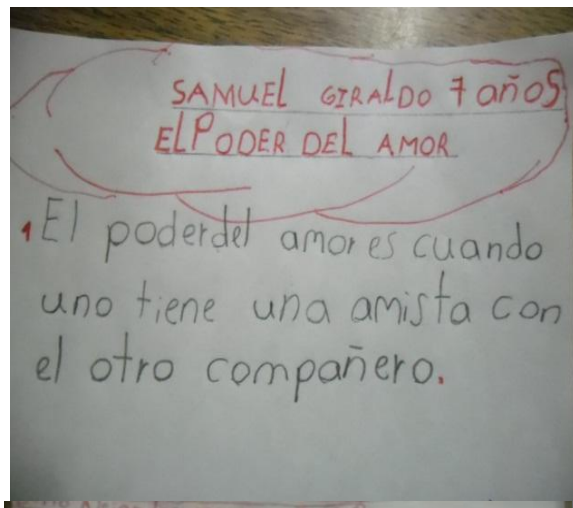 SAMUEl GIRAlDO 7 años
ElPODER DEL AMOR
1 El poderdel amor es cuando
uno tiene una amista con
el otro compañero.